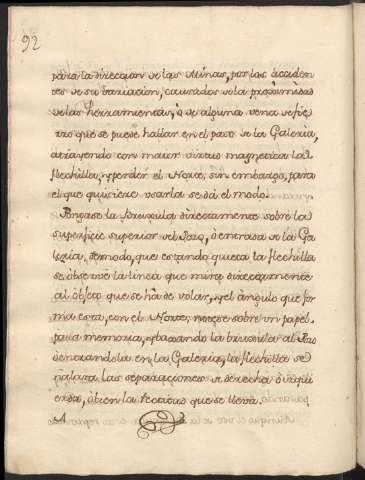 92
para la direccion de las Minas, por los acciden
tes de su variacion, causados de la proximidad
de las Herramientas, ò de alguna vena de fie
rro que se puede hallar en el paso de la Galeria,
atrayendo con maior virtud magnetica la
flechilla, y perder el Norte; sin embargo, para
el que quisiere usarla se dá el modo.
Pongase la Bruxula directamente sobre la
superficie superior del Pozo, ò entrada de la Ga
leria, demodo, que estando quieta la flechilla
se observe la linea que mira directamente
al objeto que se há de volar, y el àngulo que for
ma esta, con el Norte; notese sobre un papel
para memoria, y baxando la bruxula al Pozo
ò entrandola en la Galeria, la flechilla se
ñalara las separaciones a derecha ò izqui
erda, ò bien la rectitud que se lleva.